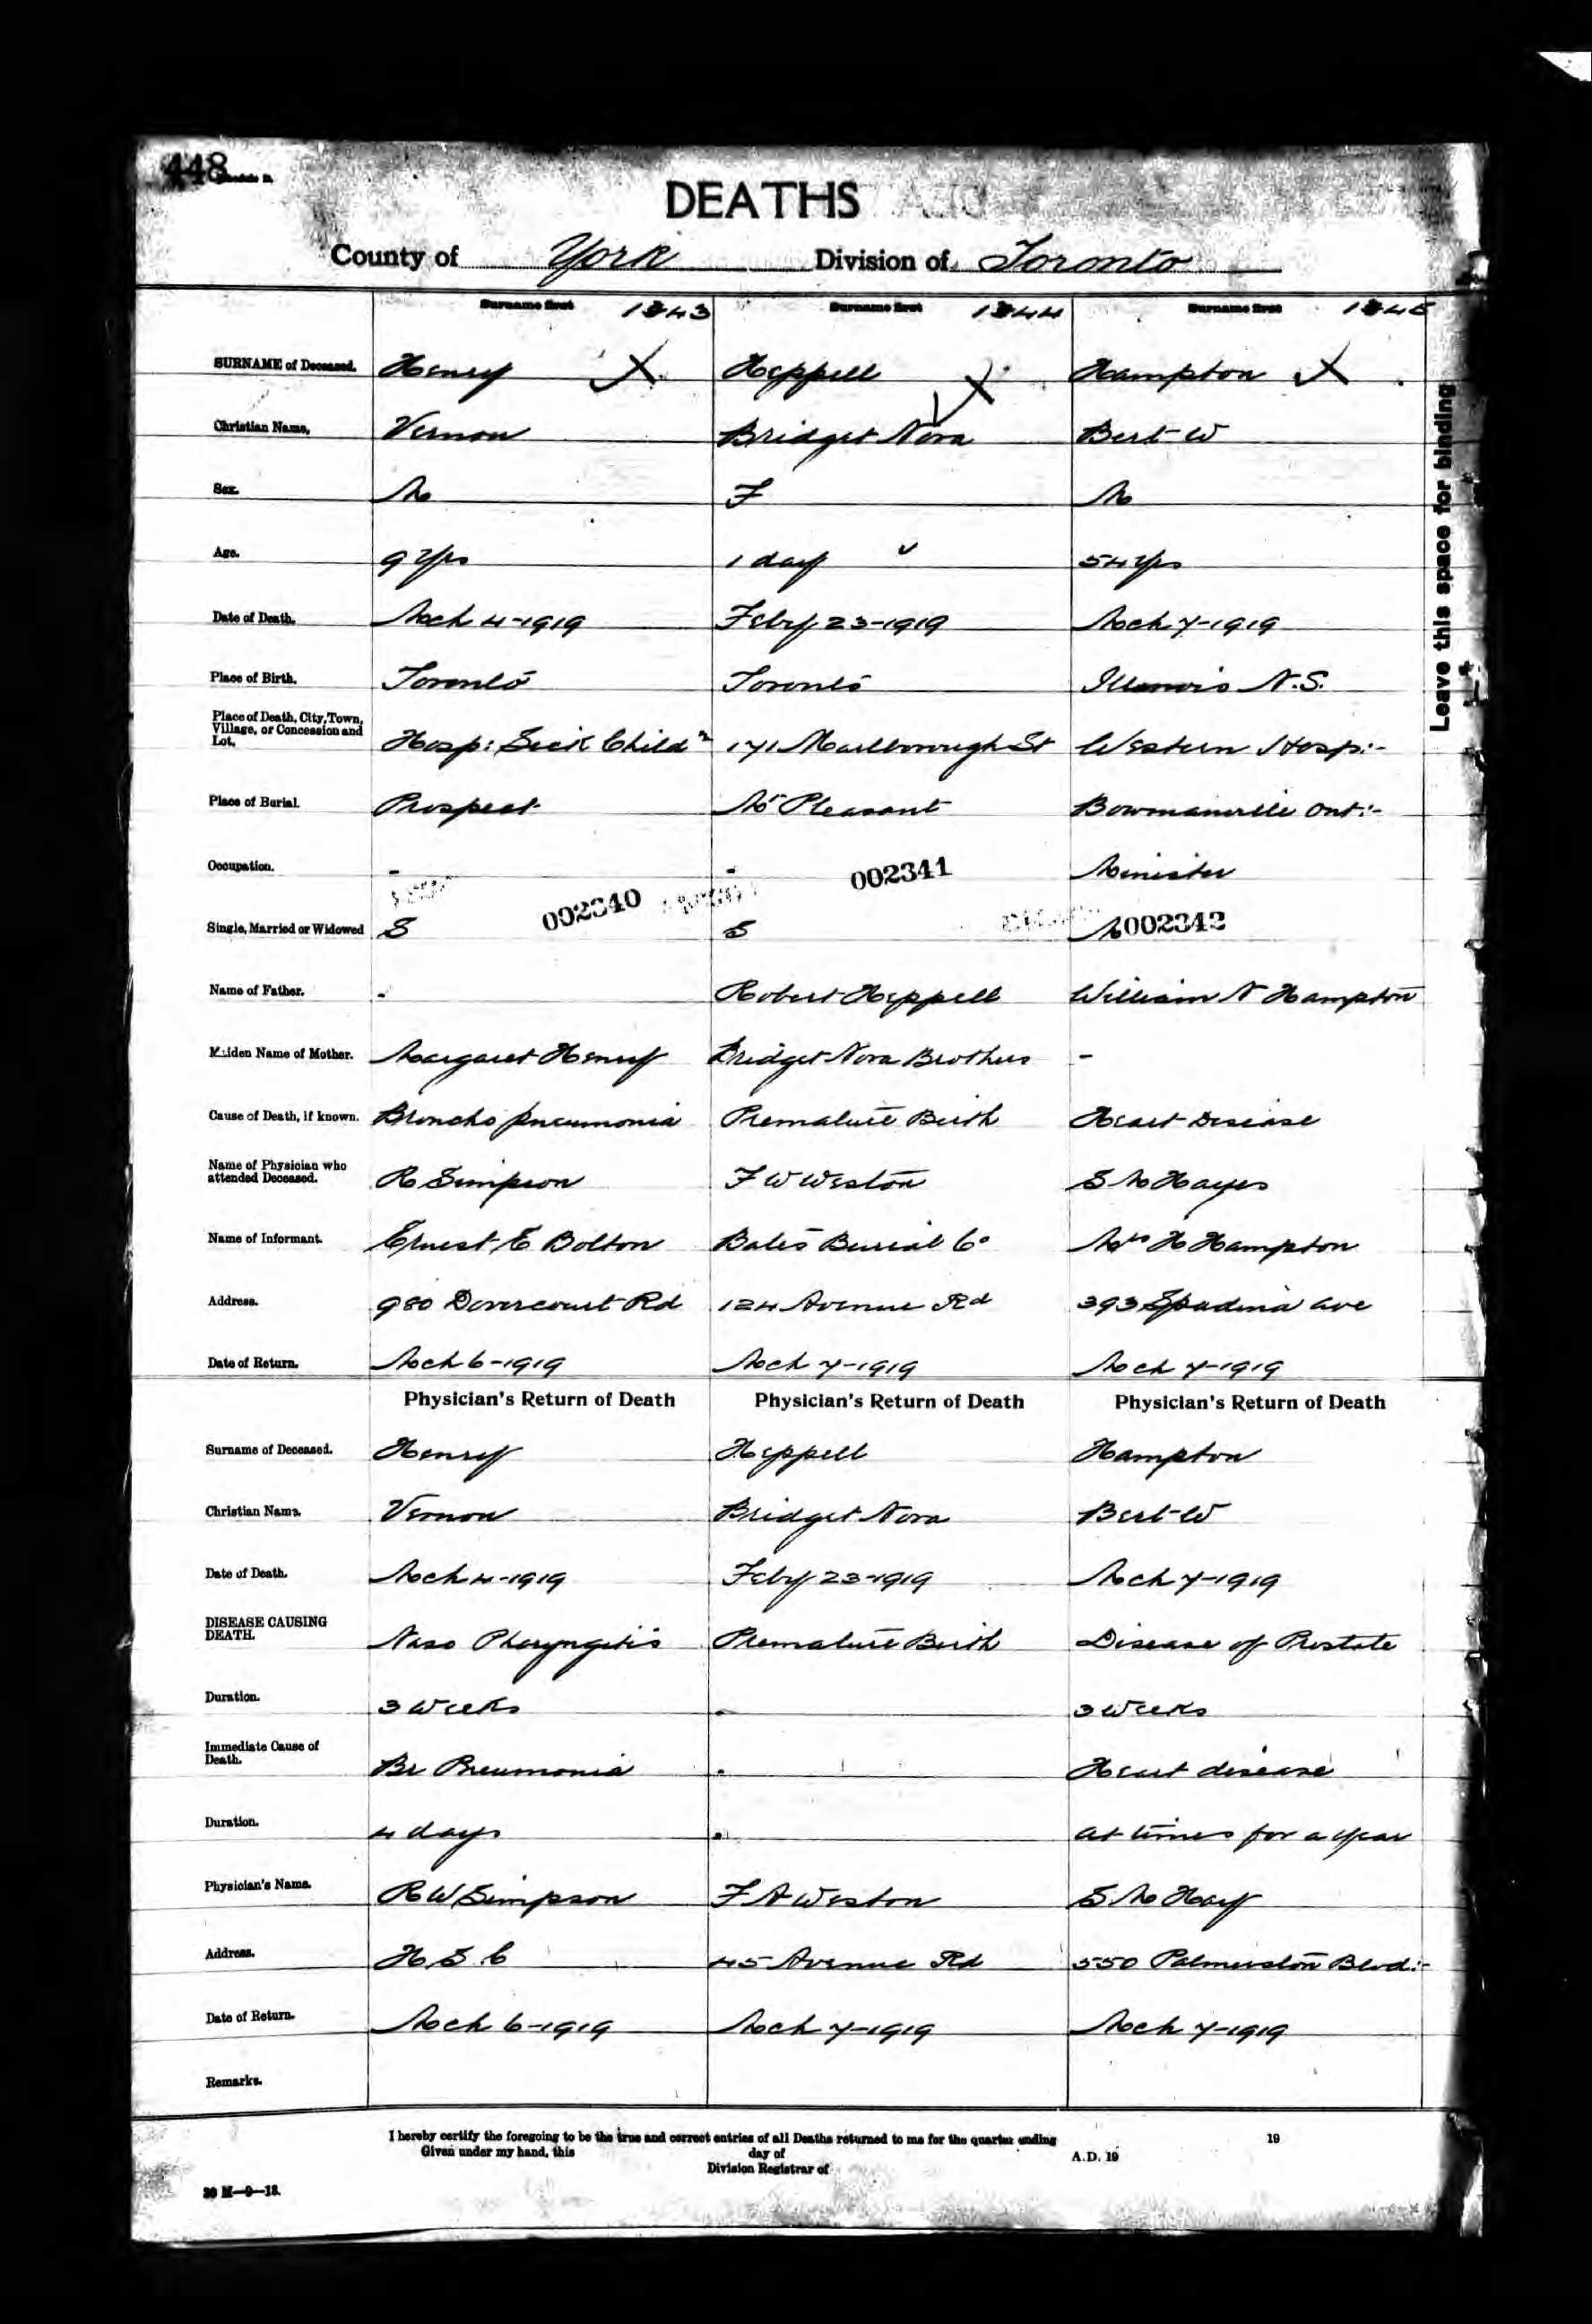 448
Schedule B.
DEATHS
County of York Division of Toronto
Surname first 1343 Surname first 1344 Surname first 1345
SURNAME of Deceased. Henry X Heppell X Hampton X
Christian Name. Vernon Bridget Nora Bert W
Sex. M F M
Age. 9 Yrs 1 day 54 Yrs
Date of Death. Mch 4-1919 Feby 23-1919 Mch 7-1919
Place of Birth. Toronto Toronto Illinois N.S.
Place of Death, City, Town,
Village, or Concession and
Lot. Hosp: Sick Childn 171 Marlborough St Western Hosp:-
Place of Burial. Prospect Mt Pleasant Bowmanville Ont:-
Occupation. - - Minister
002340 002341 002342
Single, Married or Widowed S S M
Name of Father. - Robert Heppell William N Hampton
Maiden Name of Mother. Margaret Henry Bridget Nora Brothers -
Cause of Death, if known. Broncho pneumonia Premature Birth Heart Disease
Name of Physician who
attended Deceased. R Simpson F W Weston S M Hayes
Name of Informant. Ernest E Bolton Bates Burial Co Mrs H Hampton
Address. 980 Dovercourt Rd 124 Avenue Rd 393 Spadina Ave
Date of Return. Mch 6-1919 Mch 7-1919 Mch 7-1919
Physician's Return of Death Physician's Return of Death Physician's Return of Death
Surname of Deceased. Henry Heppell Hampton
Christian Name. Vernon Bridget Nora Bert W
Date of Death. Mch 4-1919 Feby 23-1919 Mch 7-1919
DISEASE CAUSING
DEATH. Naso Pharyngitis Premature Birth Disease of Prostate
Duration. 3 Weeks - 3 Weeks
Immediate Cause of
Death. Br Pneumonia - Heart disease
Duration. 4 days - at times for a year
Physician's Name. R W Simpson F A Weston S M Hay
Address. H S C 45 Avenue Rd 550 Palmerston Blvd:-
Date of Return. Mch 6-1919 Mch 7-1919 Mch 7-1919
Remarks.
I hereby certify the foregoing to be the true and correct entries of all Deaths returned to me for the quarter ending 19
Given under my hand, this day of A.D. 19
Division Registrar of
30 M—9—18.
Leave this space for binding